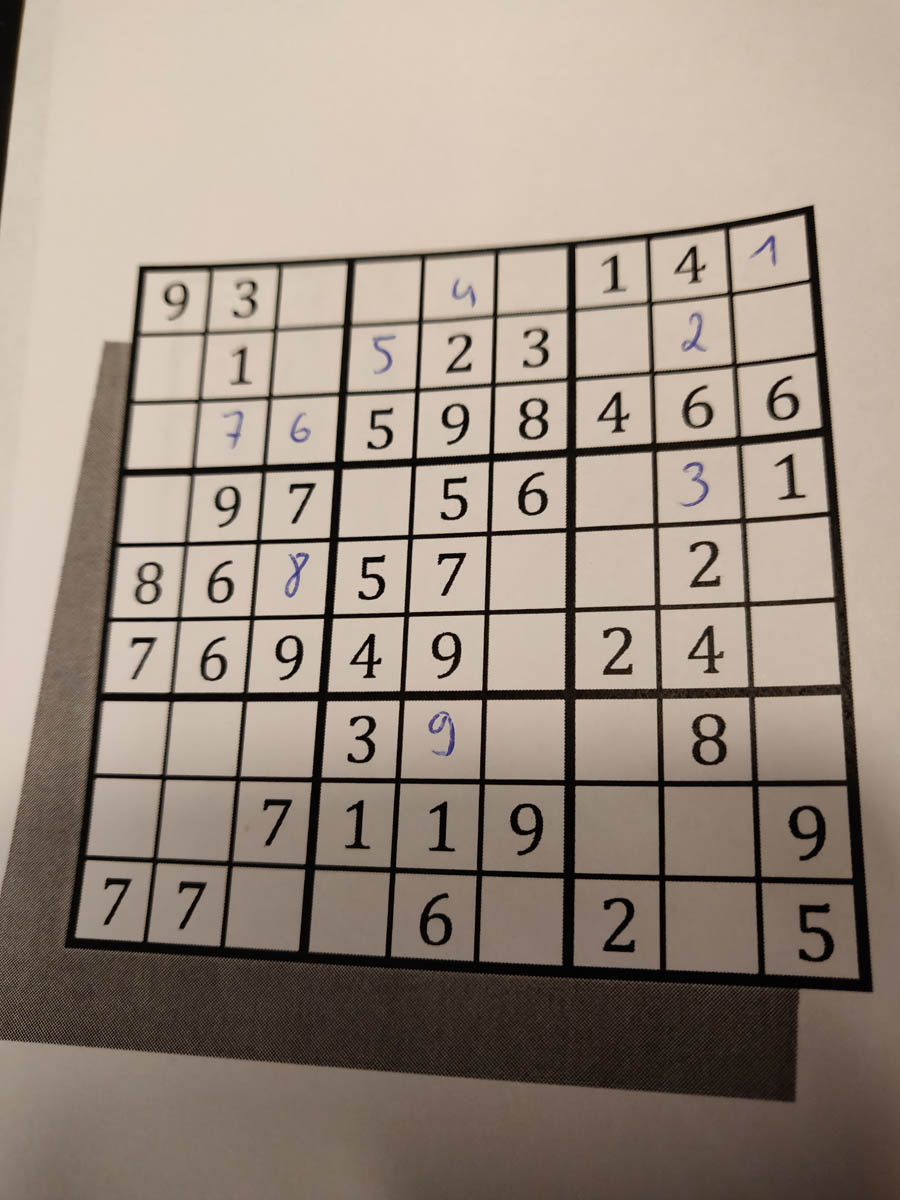 9 3 4 1 4 1
1 5 2 3 2
7 6 5 9 8 4 6 6
9 7 5 6 3 1
8 6 8 5 7 2
7 6 9 4 9 2 4
3 9 8
7 1 1 9 9
7 7 6 2 5